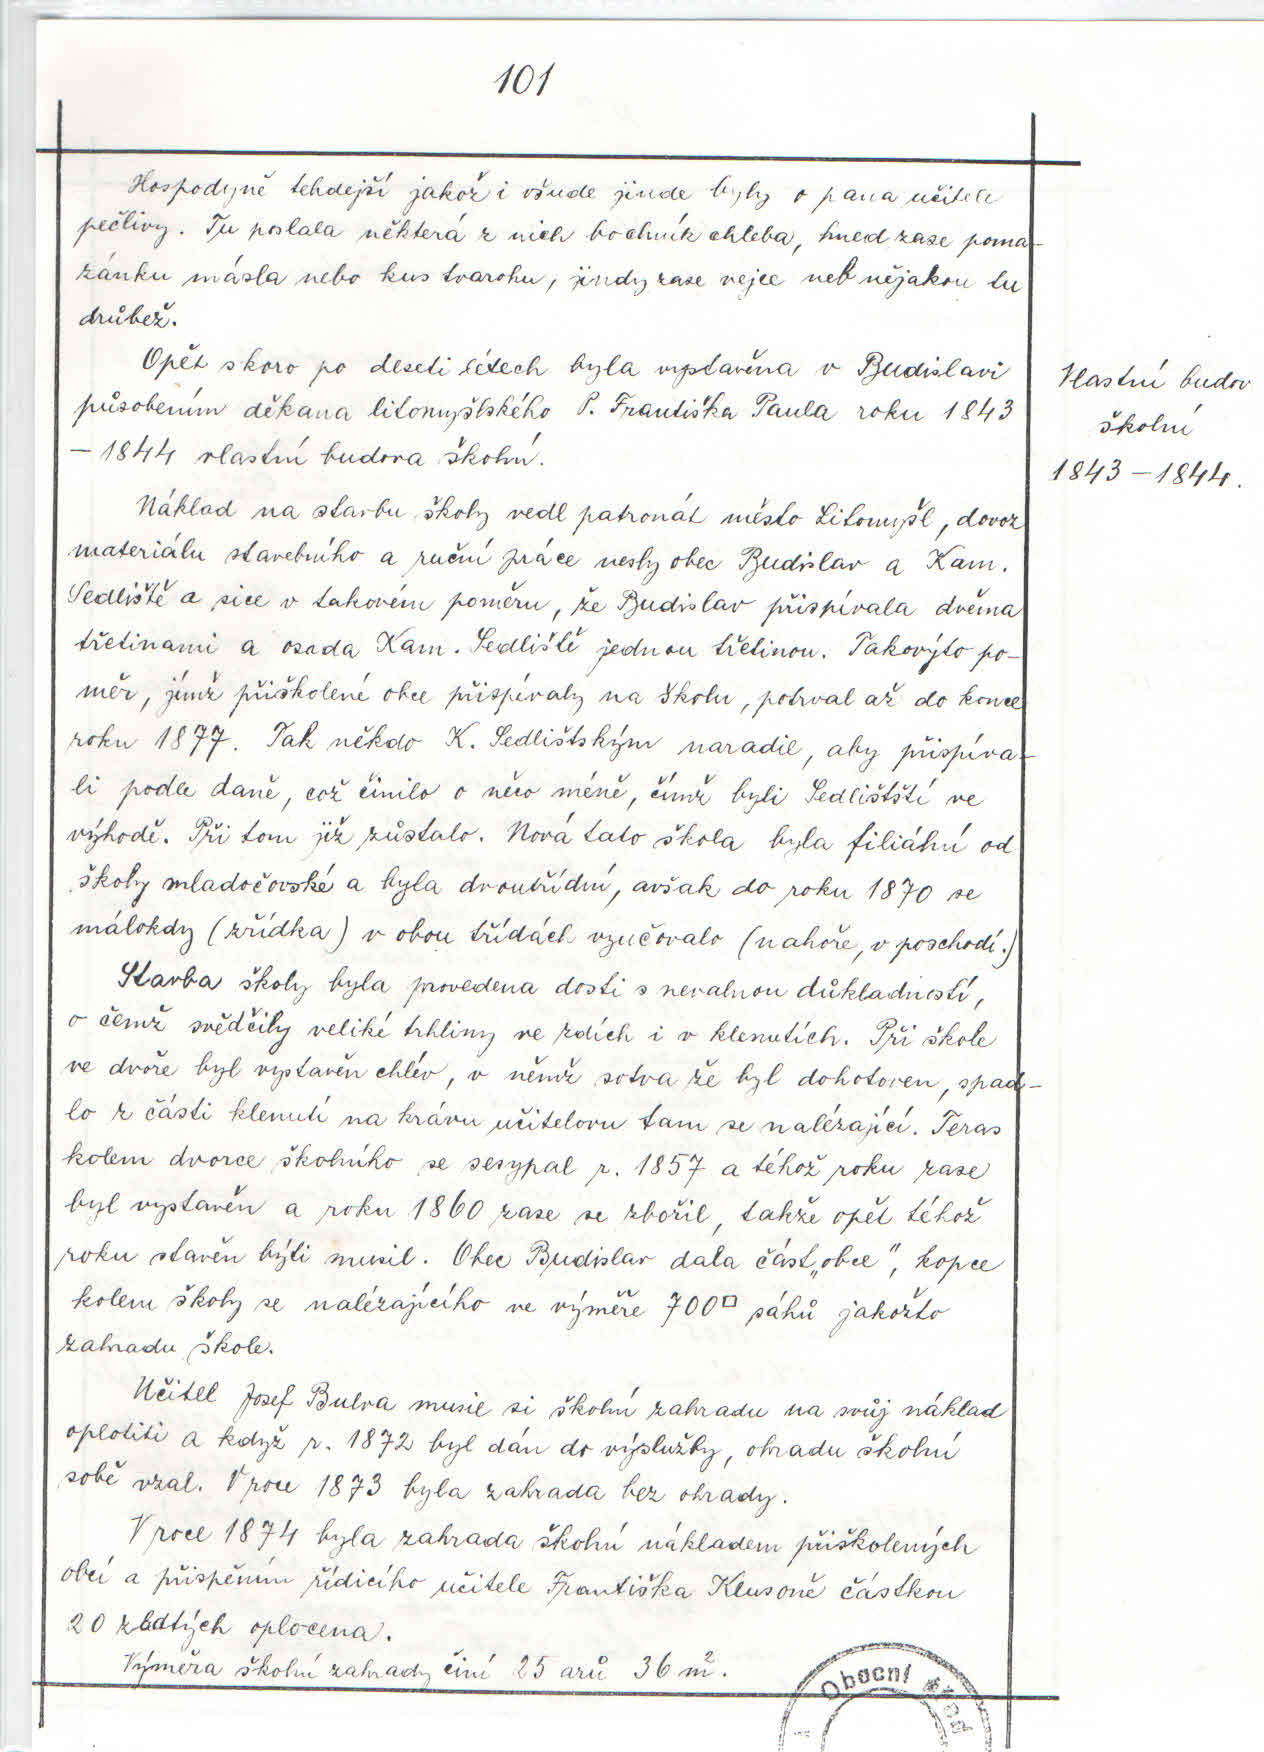 101
Hospodyně tehdejší jakož i všude jinde byly o pana učitele
pečlivy. Tu poslala některá z nich bochník chleba, hned zase poma-
zánku másla nebo kus tvarohu, jindy zase vejce neb nějakou tu
drůbež.
Opět skoro po deseti létech byla vystavěna v Budislavi
působením děkana litomyšlského P. Františka Paula roku 1843
– 1844 vlastní budova školní.
Vlastní budov
školní
1843 – 1844.
Náklad na stavbu školy vedl patronát město Litomyšl, dovoz
materiálu stavebního a ruční práce nesly obec Budislav a Kam.
Sedliště a sice v takovém poměru, že Budislav přispívala dvěma
třetinami a osada Kam. Sedliště jednou třetinou. Takovýto po-
měr, jímž přiškolené obce přispívaly na školu, potrval až do konce
roku 1877. Tak někdo K. Sedlištským naradil, aby přispíva-
li podle daně, což činilo o něco méně, čímž byli Sedlištští ve
výhodě. Při tom již zůstalo. Nová tato škola byla filiální od
školy mladočovské a byla dvoutřídní, avšak do roku 1870 se
málokdy (zřídka) v obou třídách vyučovalo (nahoře, v poschodí.)
Stavba školy byla provedena dosti s nevalnou důkladností,
o čemž svědčily veliké trhliny ve zdích i v klenutích. Při škole
ve dvoře byl vystavěn chlév, v němž sotva že byl dohotoven, spad-
lo z části klenutí na krávu učitelovu tam se nalézající. Teras
kolem dvorce školního se sesypal r. 1857 a téhož roku zase
byl vystavěn a roku 1860 zase se zbořil, takže opět téhož
roku stavěn býti musil. Obec Budislav dala část „obce", kopce
kolem školy se nalézajícího ve výměře 700□ sáhů jakožto
zahradu škole.
Učitel Josef Bulva musil si školní zahradu na svůj náklad
oplotiti a když r. 1872 byl dán do výslužby, ohradu školní
sobě vzal. V roce 1873 byla zahrada bez ohrady.
V roce 1874 byla zahrada školní nákladem přiškolených
obcí a přispěním řídicího učitele Františka Klusoně částkou
20 zlatých oplocena.
Výměra školní zahrady činí 25 arů 36 m².
Obecní úřad